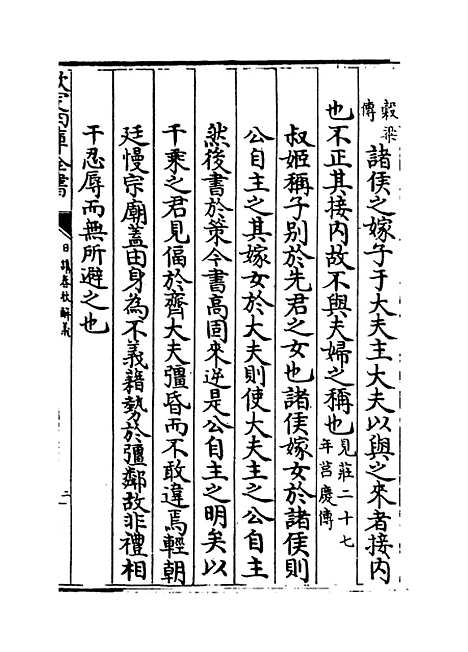 穀梁傳諸侯之嫁子于大夫主大夫以與之來者接内
也不正其接内故不與夫婦之稱也見莊二十七年莒慶傳
叔姬稱子别於先君之女也諸侯嫁女於諸侯則
公自主之其嫁女於大夫則使大夫主之公自主
然後書於策今書高固來逆是公自主之明矣以
千乘之君見偪於齊大夫彊昏而不敢違焉輕朝
廷慢宗廟蓋由身為不義藉勢於彊鄰故非禮相
干忍辱而無所避之也
欽定四庫全書
日講春秋解義